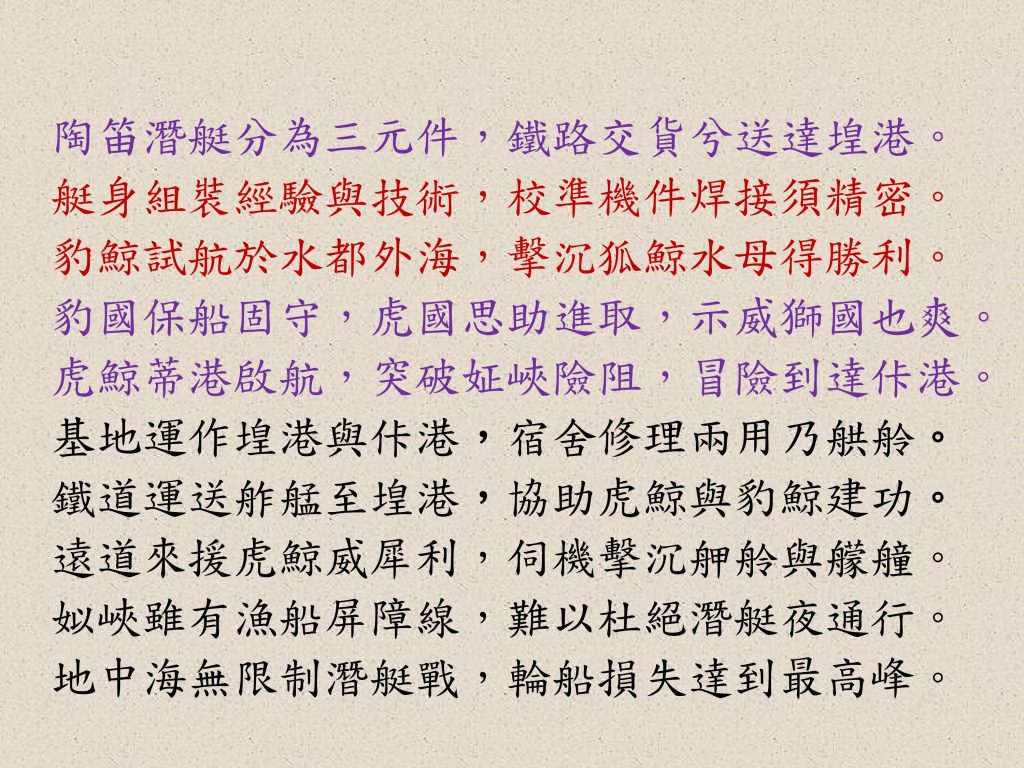 陶笛潛艇分為三元件，鐵路交貨兮送達堭港。
艇身組裝經驗與技術，校準機件焊接須精密。
豹鯨試航於水都外海，擊沉狐鯨水母得勝利。
豹國保船固守，虎國思助進取，示威獅國也爽。
虎鯨蒂港啟航，突破姃峽險阻，冒險到達佧港。
基地運作堭港與佧港，宿舍修理兩用乃舼舲。
鐵道運送舴艋至堭港，協助虎鯨與豹鯨建功。
遠道來援虎鯨威犀利，伺機擊沉舺舲與艨艟。
姒峽雖有漁船屏障線，難以杜絕潛艇夜通行。
地中海無限制潛艇戰，輪船損失達到最高峰。